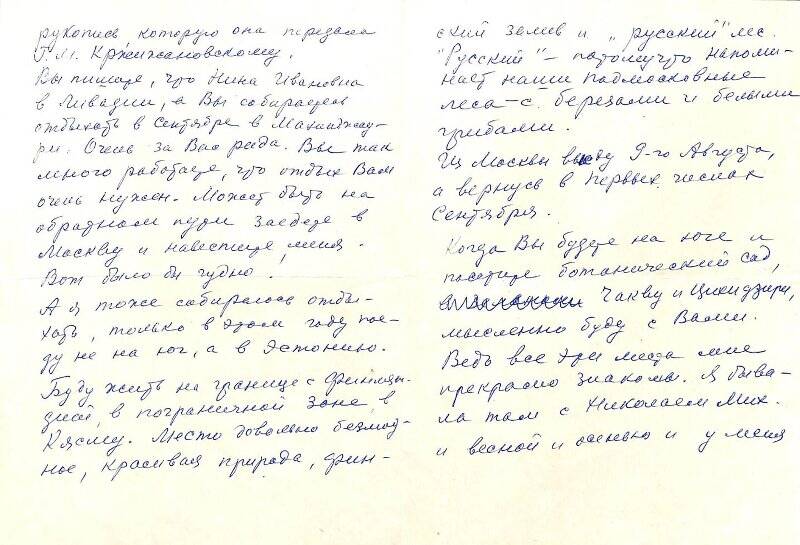 рукопись которую она передала
Г.М. Кржижановскому.
Вы пишите, что Нина Ивановна
в Ливадии, а Вы собираетесь
отдыхать в Сентябре в Махинджау-
ри. Очень за Вас рада. Вы так
много работаете, что отдых Вам
очень нужен. Может быть на
обратном пути заедете в
Москву и навестите меня.
Вот было бы чудно!
А я тоже собираюсь отды-
хать, только в этом году пое-
ду не на юг, а в Эстонию.
Буду жить на границе с Финлян-
дией, в пограничной зоне, в
Кясму. Место довольно безлюд-
ное, красивая природа, фин-
ский залив и "русский" лес.
"Русский" - потому что напоми-
нает наши подмосковные
леса - с березами и белыми
грибами.
Из Москвы выеду 9-го Августа,
а вернусь в первых числах
Сентября.
Когда Вы будете на юге и
посетите ботанический сад,
Чакву и Цихидзири,
мысленно буду с Вами.
Ведь все эти места мне
прекрасно знакомы. Я быва-
ла там с Николаем Мих.
и весной и осенью и у меня